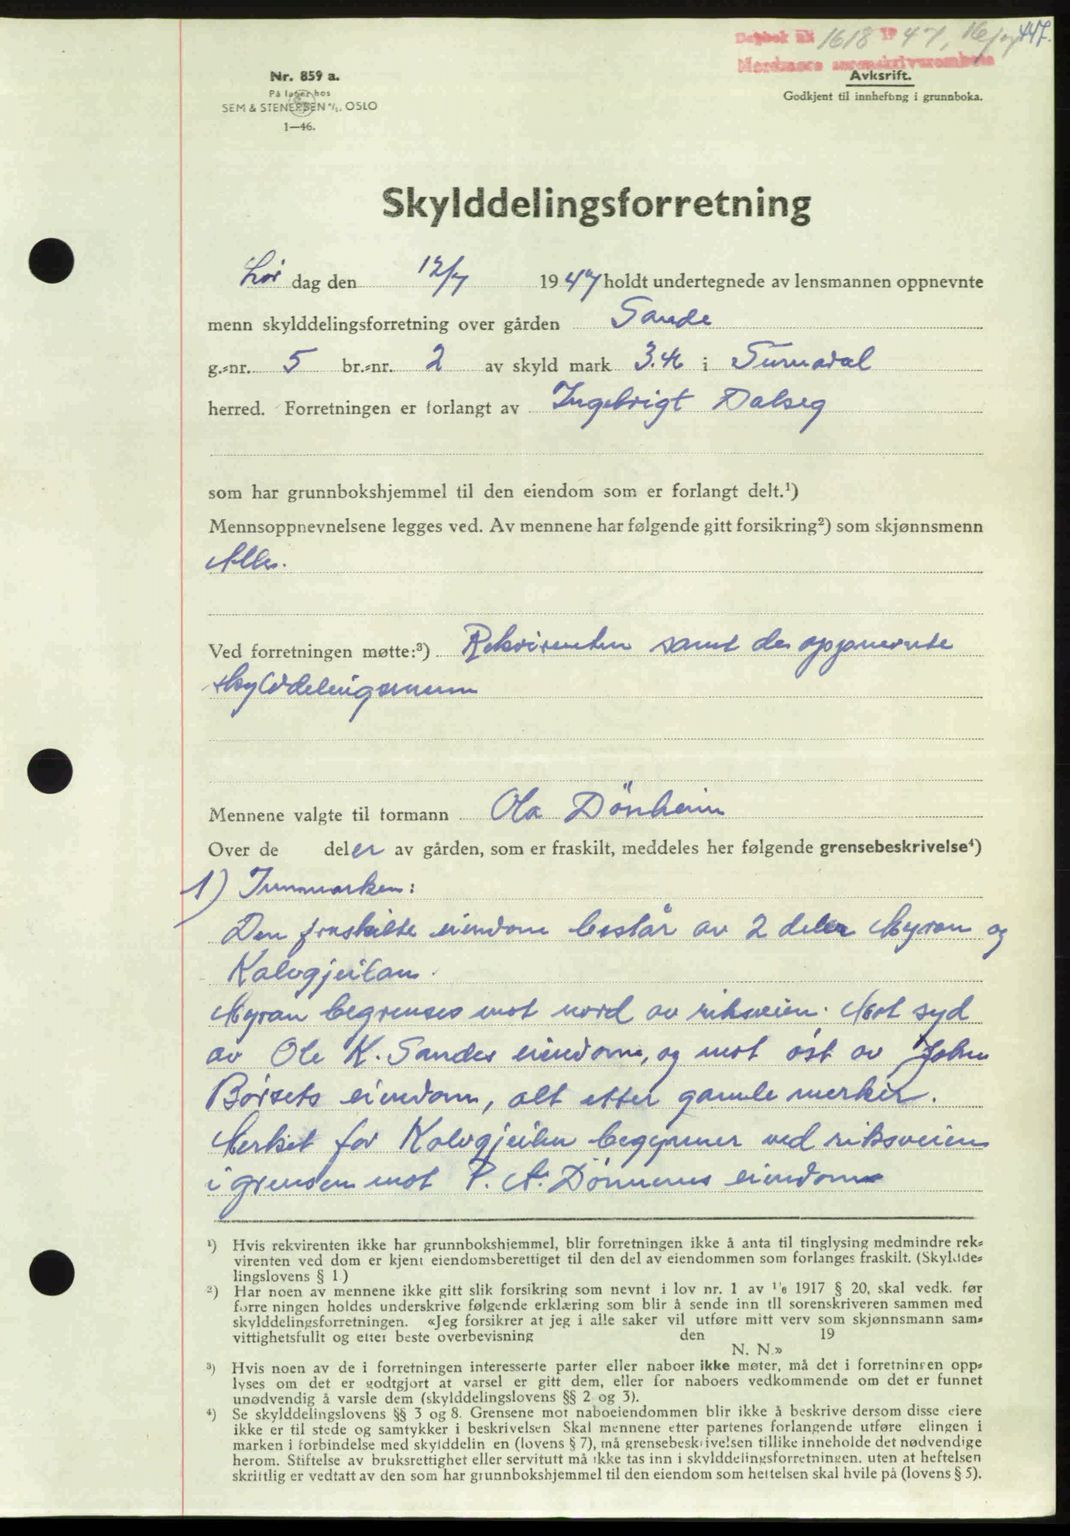 Dagbok nr. 1618 19 47, 16/7 447.
Nordmøre sorenskriverembete
Nr. 859 a.
På lager hos
SEM & STENERSEN A/S, OSLO
1—46.
Avksrift.
Godkjent til innhefting i grunnboka.
Skylddelingsforretning
Lør dag den 12/7 1947 holdt undertegnede av lensmannen oppnevnte
menn skylddelingsforretning over gården Sande
g.-nr. 5 br.-nr. 2 av skyld mark 3.46 i Surnadal
herred. Forretningen er forlangt av Ingebrigt Dalseg
som har grunnbokshjemmel til den eiendom som er forlangt delt.¹)
Mennsoppnevnelsene legges ved. Av mennene har følgende gitt forsikring²) som skjønnsmenn
Alle.
Ved forretningen møtte:³) Rekvirenten samt de oppnevnte
skylddelingsmenn
Mennene valgte til formann Ola Dönheim
Over de deler av gården, som er fraskilt, meddeles her følgende grensebeskrivelse⁴)
1) Innmarken:
Den fraskilte eiendom består av 2 deler Myran og
Kalvgjeilan.
Myran begrenses mot nord av riksveien. Mot syd
av Ole K. Sandes eiendom, og mot øst av John
Børsets eiendom, alt etter gamle merker.
Merket for Kalvgjeilen begynner ved riksveien
i grensen mot P. A. Dönnems eiendom
¹) Hvis rekvirenten ikke har grunnbokshjemmel, blir forretningen ikke å anta til tinglysing medmindre rek-
virenten ved dom er kjent eiendomsberettiget til den del av eiendommen som forlanges fraskilt. (Skyldde-
lingslovens § 1)
²) Har noen av mennene ikke gitt slik forsikring som nevnt i lov nr. 1 av 1/6 1917 § 20, skal vedk. før
forretningen holdes underskrive følgende erklæring som blir å sende inn til sorenskriveren sammen med
skylddelingsforretningen. «Jeg forsikrer at jeg i alle saker vil utføre mitt verv som skjønnsmann sam-
vittighetsfullt og etter beste overbevisning den 19
N. N.»
³) Hvis noen av de i forretningen interesserte parter eller naboer ikke møter, må det i forretningen opp-
lyses om det er godtgjort at varsel er gitt dem, eller for naboers vedkommende om det er funnet
unødvendig å varsle dem (skylddelingslovens §§ 2 og 3).
⁴) Se skylddelingslovens §§ 3 og 8. Grensene mot naboeiendommen blir ikke å beskrive dersom disse eiere
ikke er til stede og samtykker i beskrivelsen Skal mennene etter partenes forlangende utføre elingen i
marken i forbindelse med skylddelin en (lovens § 7), må grensebeskrivelsen tillike inneholde det nødvendige
herom. Stiftelse av bruksrettighet eller servitutt må ikke tas inn i skylddelingsforretningen. uten at heftelsen
skriftlig er vedtatt av den som har grunnbokshjemmel til den eiendom som heftelsen skal hvile på (lovens § 5).